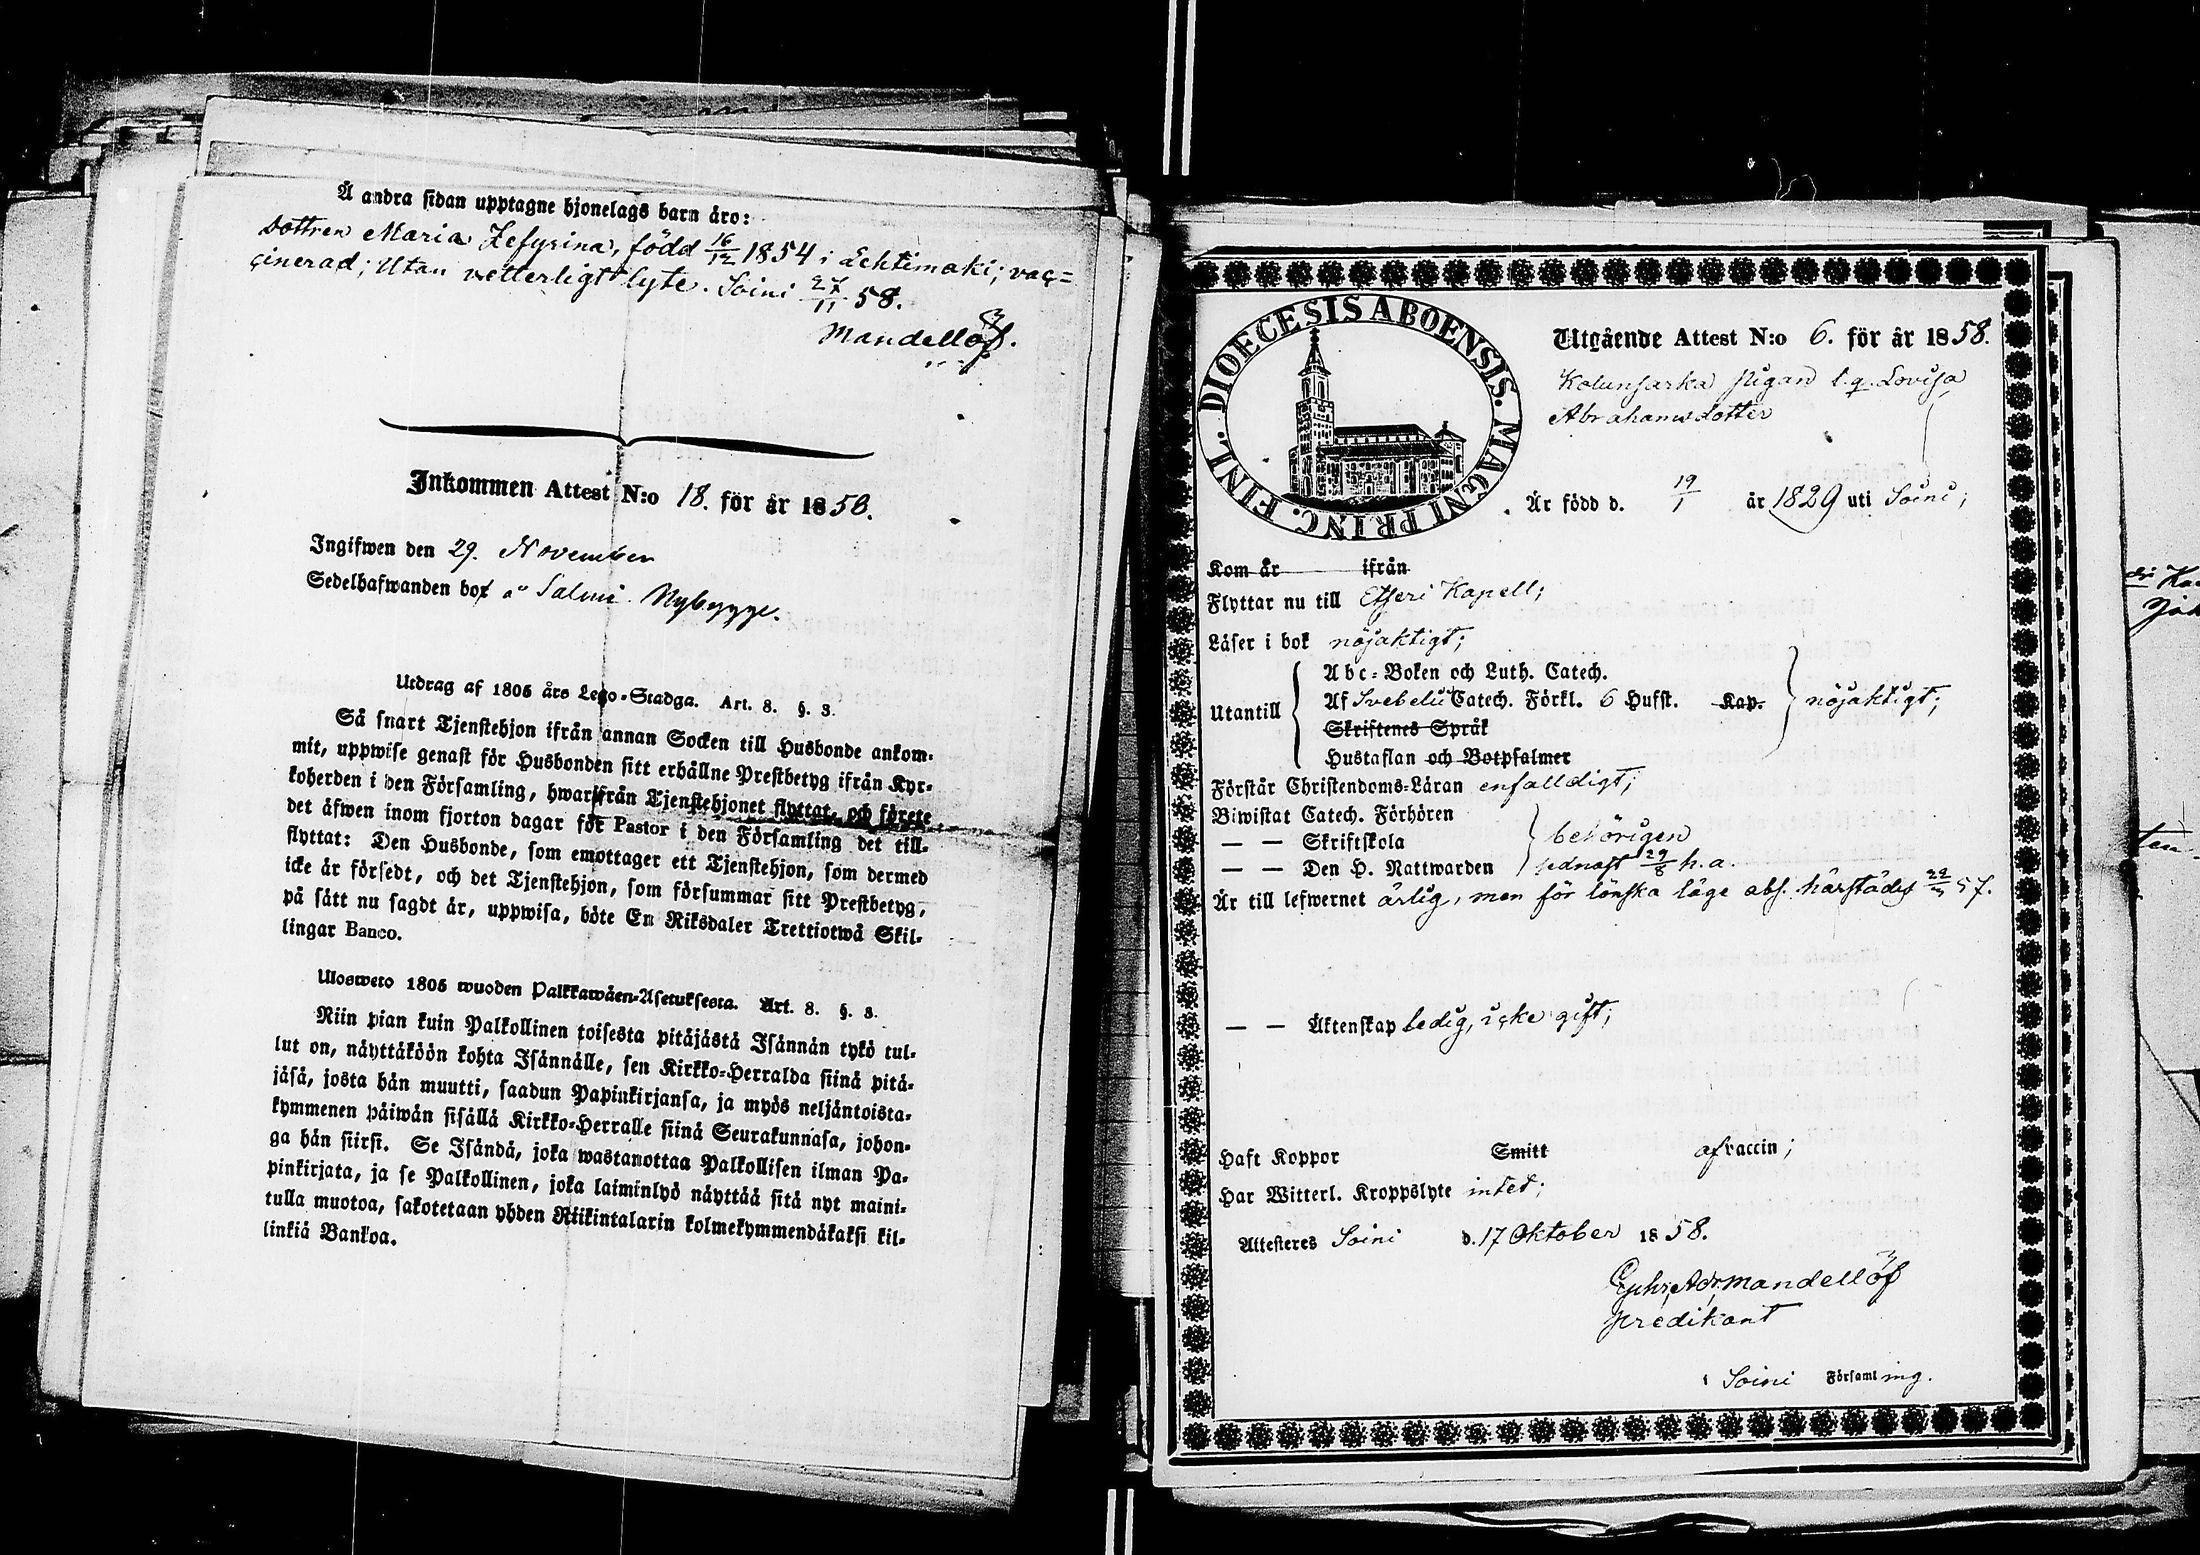 Å andra sidan upptagne hjonelags barn äro:
dottren Maria Zefyrina, född 16/12 1854 i Lehtimäki; vac-
cinerad; Utan vetterligt lyte. Soini 27/11 58.
Mandellöf.
Inkommen Attest N:o 18. för år 1858.
Ingifwen den 29. November
Sedelhafwanden bor å Salmi Nybygge.
Utdrag af 1805 års Lego-Stadga. Art. 8. §. 3.
Så snart Tjenstehjon ifrån annan Socken till Husbonde ankom-
mit, uppwise genast för Husbonden sitt erhållne Prestbetyg ifrån Kyr-
koherden i den Församling, hwarifrån Tjenstehjonet flyttat, och förete
det äfwen inom fjorton dagar för Pastor i den Församling det till-
flyttat: Den Husbonde, som emottager ett Tjenstehjon, som dermed
icke är försedt, och det Tjenstehjon, som försummar sitt Prestbetyg,
på sätt nu sagdt är, uppwisa, böte En Riksdaler Trettiotwå Skil-
lingar Banco.
Ulosweto 1805 wuoden Palkkawäen-Asetuksesta. Art. 8. §. 3.
Niin pian kuin Palkollinen toisesta pitäjästä Isännän tykö tul-
lut on, näyttäköön kohta Isännälle, sen Kirkko-Herralda siinä pitä-
jäsä, josta hän muutti, saadun Papinkirjansa, ja myös neljäntoista-
kymmenen päiwän sisällä Kirkko-Herralle siinä Seurakunnasa, johon-
ga hän siirsi. Se Isändä, joka wastanottaa Palkollisen ilman Pa-
pinkirjata, ja se Palkollinen, joka laiminlyö näyttää sitä nyt maini-
tulla muotoa, sakotetaan yhden Riikintalarin kolmekymmendäkaksi kil-
linkiä Bankoa.
DIOECESIS ABOENSIS. MAGNI PRINC. FINL.
Utgående Attest N:o 6. för år 1858.
Kolunsarka pigan l.q. Lovisa
Abrahamsdotter
Är född d. 19/1 år 1829 uti Soini;
Kom år ifrån
Flyttar nu till Etseri Kapell;
Läser i bok nöjaktigt;
Abc-Boken och Luth. Catech.
Utantill Af Svebelii Catech. Förkl. 6 Hufst. Kap. nöjaktigt;
Skriftenes Språk
Hustaflan och Botpsalmer
Förstår Christendoms-Läran enfalldigt;
Biwistat Catech. Förhören
— — Skriftskola behörigen
— — Den H. Nattwarden sednast 29/8 h.a.
Är till lefwernet ärlig, men för lönska läge abs. härstädes 57.
— — Äktenskap ledig, icke gift;
Haft Koppor Smitt af vaccin;
Har Witterl. Kroppslyte intet;
Attesteres Soini d. 17 Oktober 1858.
Mandellöf
predikant
i Soini Församling.